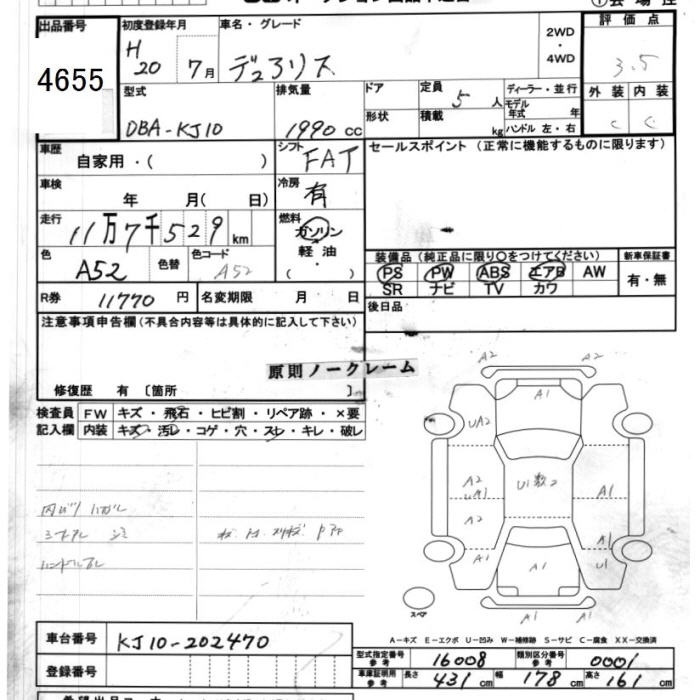 出品番号
4655
初度登録年月
H 20 7月
車名・グレード
デュアリス
2WD
・
4WD
評価点
3.5
外装 内装
C C
型式
DBA-KJ10
排気量
1990 cc
ドア
形状
定員
5 人
積載
kg
ディーラー・並行
モデル年式 年
ハンドル 左・右
車歴
自家用・( )
シフト
FAT
セールスポイント(正常に機能するものに限ります)
車検
年 月( 日)
冷房
有
走行
11万7千529 km
燃料
ガソリン
軽油
・( )
色
A52
色替
色コード
A52
装備品(純正品に限り○をつけてください)
PS PW ABS エアB AW
SR ナビ TV カワ
新車保証書
有・無
R券 11770 円
名変期限 月 日
後日品
注意事項申告欄(不具合内容等は具体的に記入して下さい)
原則ノークレーム
修復歴 有 〔箇所 〕
検査員
記入欄
FW キズ・飛石・ヒビ割・リペア跡・×要
内装 キズ・汚レ・コゲ・穴・スレ・キレ・破レ
A2 A2
A1
UA2
A2
UA1
U1数2
A1
A2
A1
A1
A1
U1
A1 A1
スペア
A-キズ E-エクボ U-凹み W-補修跡 S-サビ C-腐食 XX-交換済
車台番号
KJ10-202470
登録番号
型式指定番号
参考
16008
類別区分番号
参考
0001
車庫証明用
参考
長さ 431 cm 幅 178 cm 高さ 161 cm